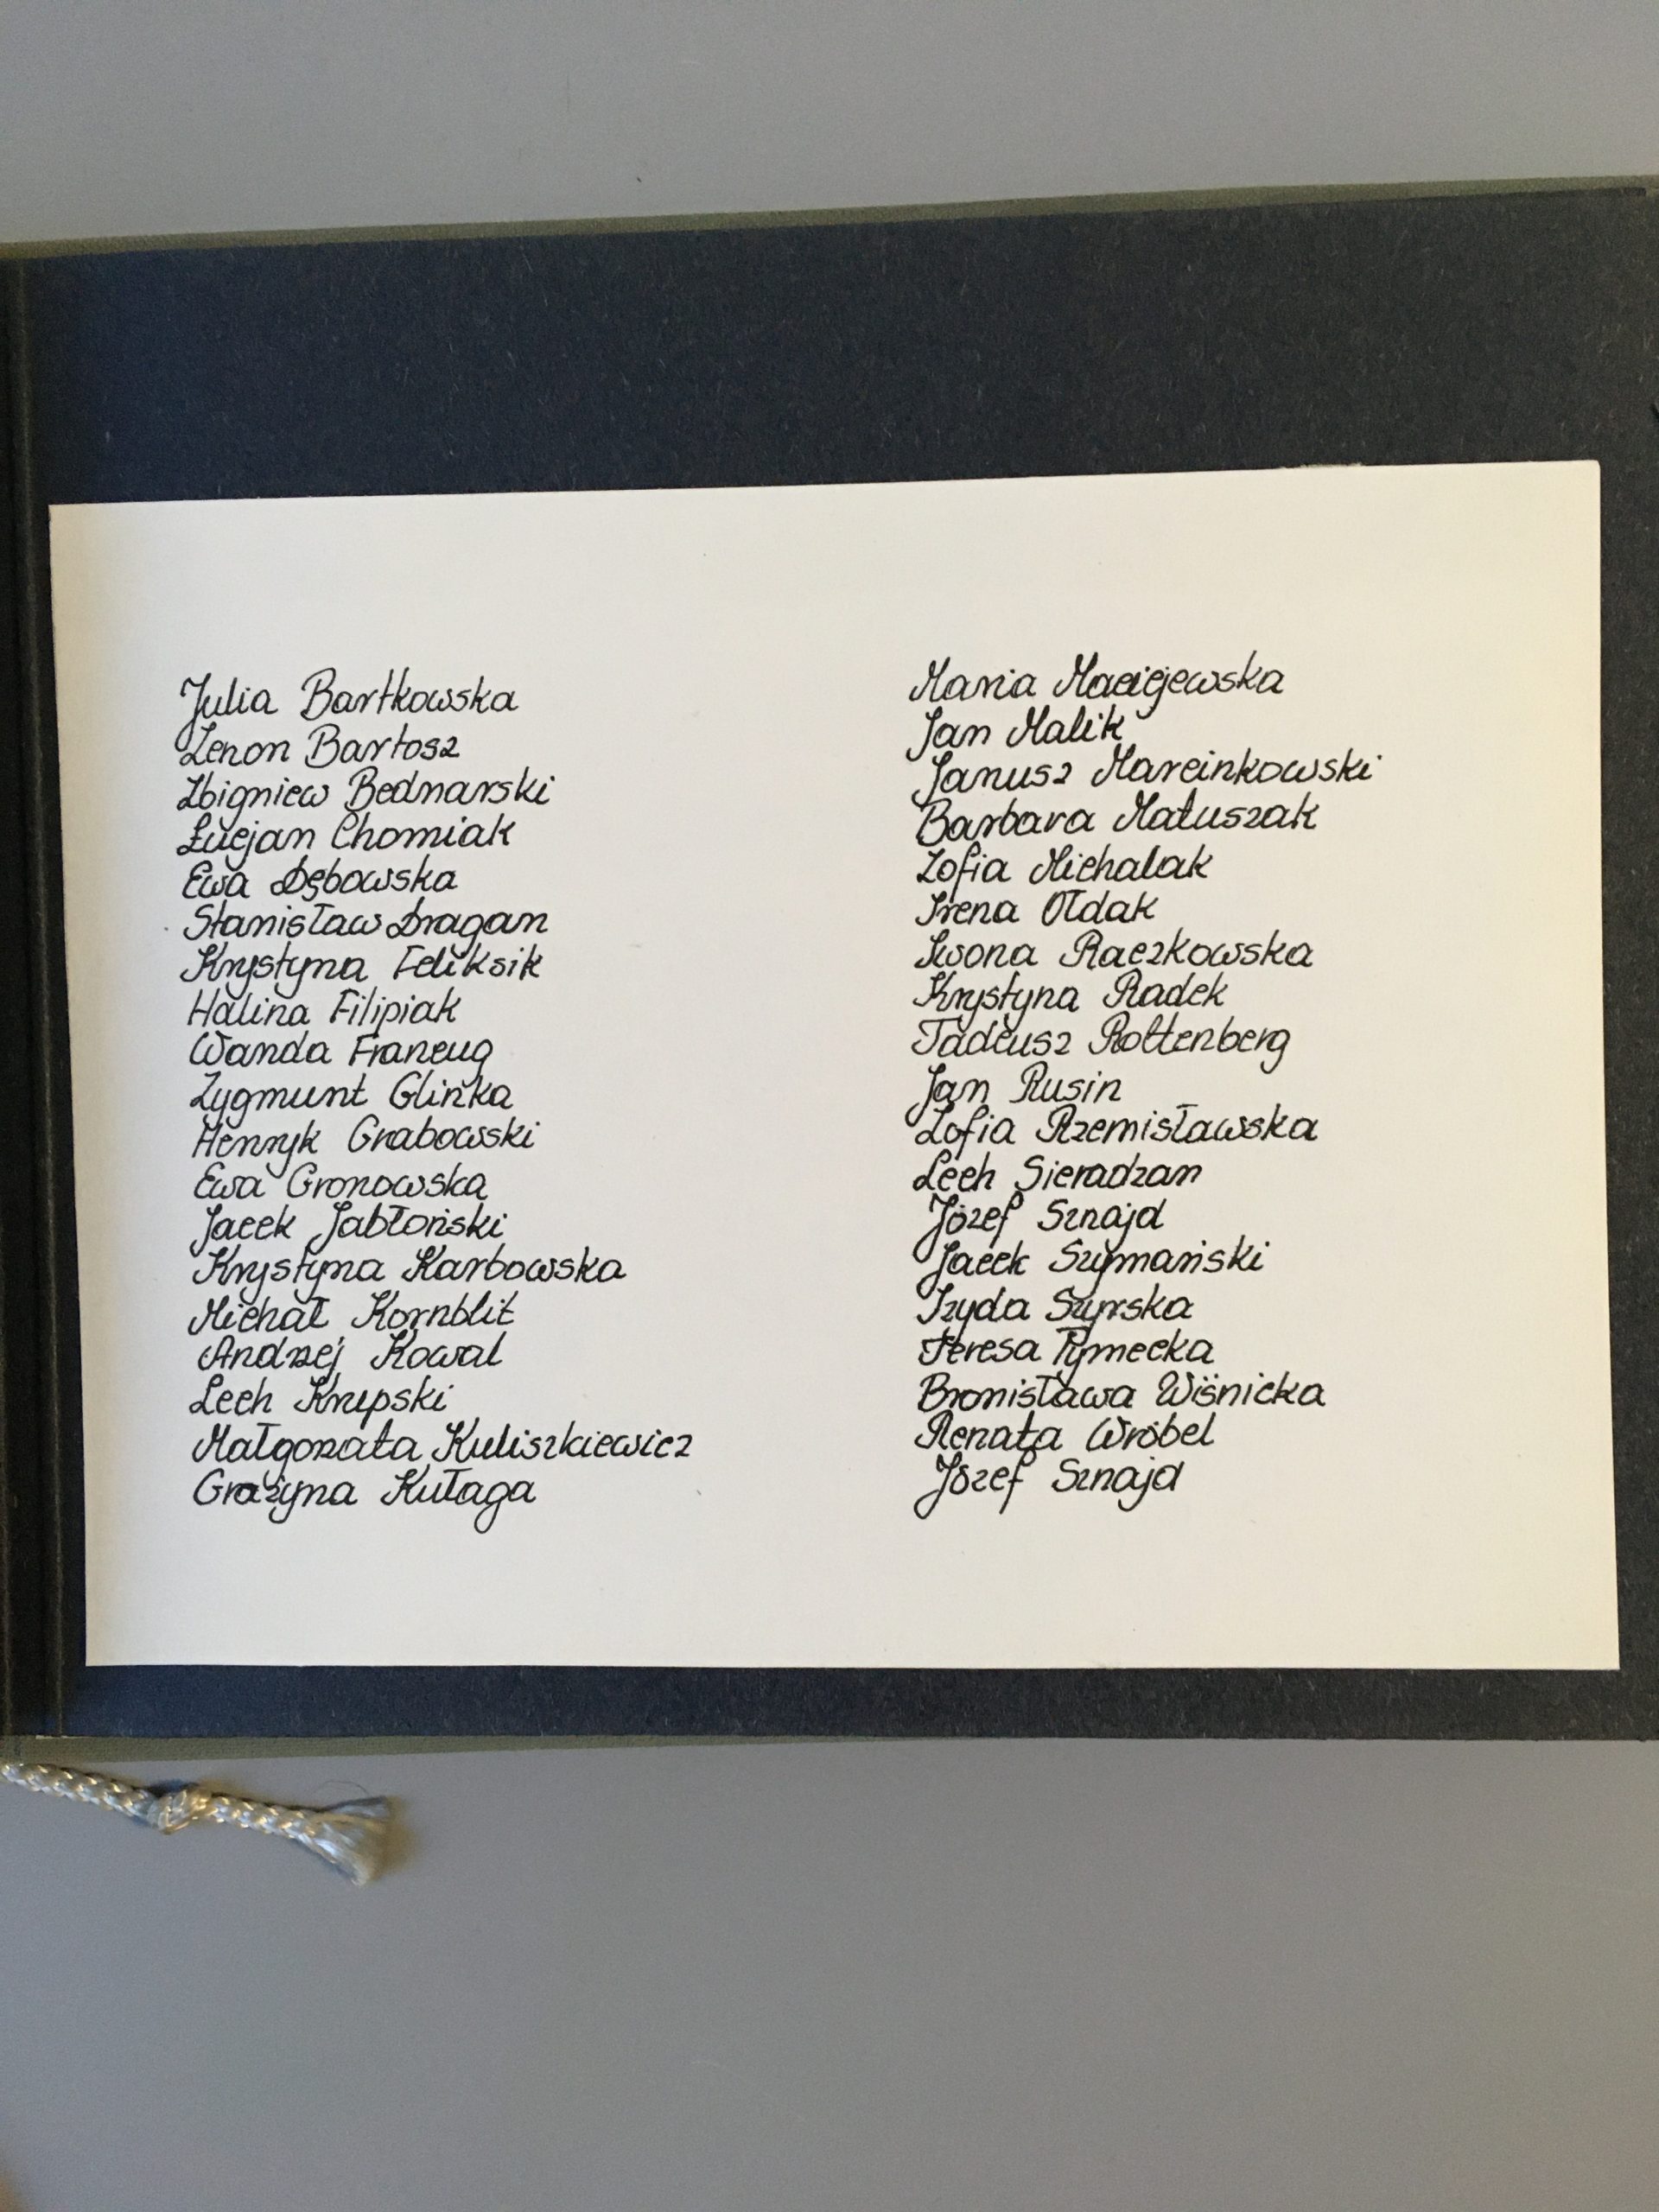 Julia Bartkowska
Zenon Bartosz
Zbigniew Bednarski
Łucjan Chomiak
Ewa Dębowska
Stanisław Dragan
Krystyna Feliksik
Halina Filipiak
Wanda Francug
Zygmunt Glińka
Henryk Grabowski
Ewa Gronowska
Jacek Jabłoński
Krystyna Karbowska
Michał Kornblit
Andrzej Kowal
Lech Krupski
Małgorzata Kuliszkiewicz
Grażyna Kułaga
Maria Maciejewska
Jan Malik
Janusz Marcinkowski
Barbara Matuszak
Zofia Michalak
Irena Ołdak
Iwona Raczkowska
Krystyna Radek
Tadeusz Rottenberg
Jan Rusin
Zofia Rzemisławska
Lech Sieradzan
Józef Sznajd
Jacek Szymański
Izyda Szyrska
Teresa Tymecka
Bronisława Wiśnicka
Renata Wróbel
Józef Sznajd